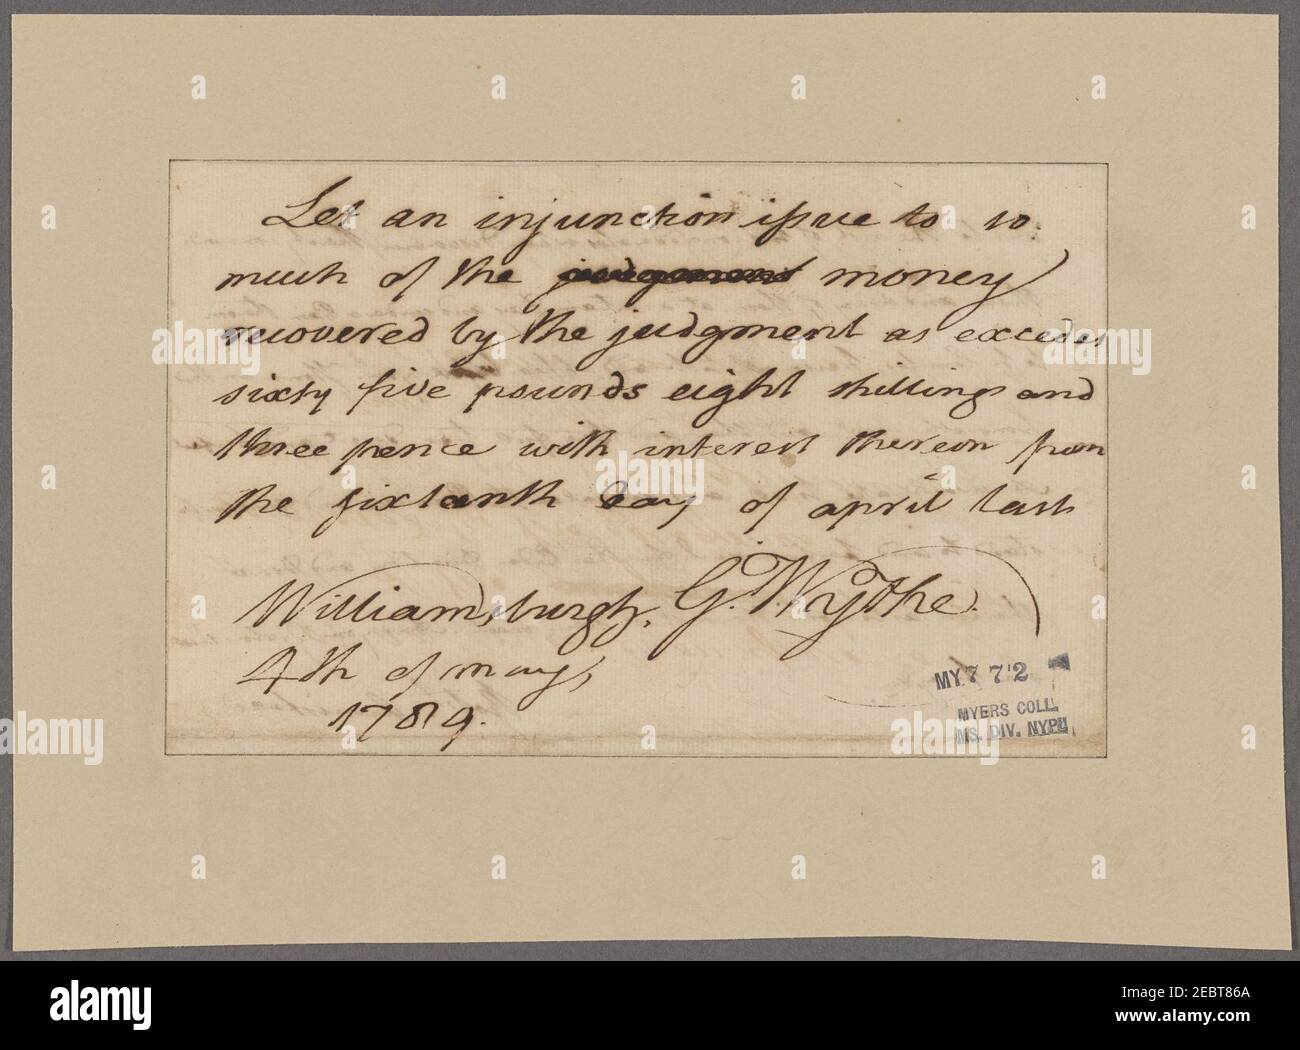 Let an injunction issue to so
much of the judgment money
recovered by the judgment as excedes
sixty five pounds eight shillings and
three pence with interest thereon from
the sixteenth day of april last
Williamsburgh, G. Wythe.
4th of may,
1789.
MY 7 7'2
MYERS COLL.
MS. DIV. NYPL
a a a a
a a a a
alamy
Image ID: 2EBT86A
www.alamy.com